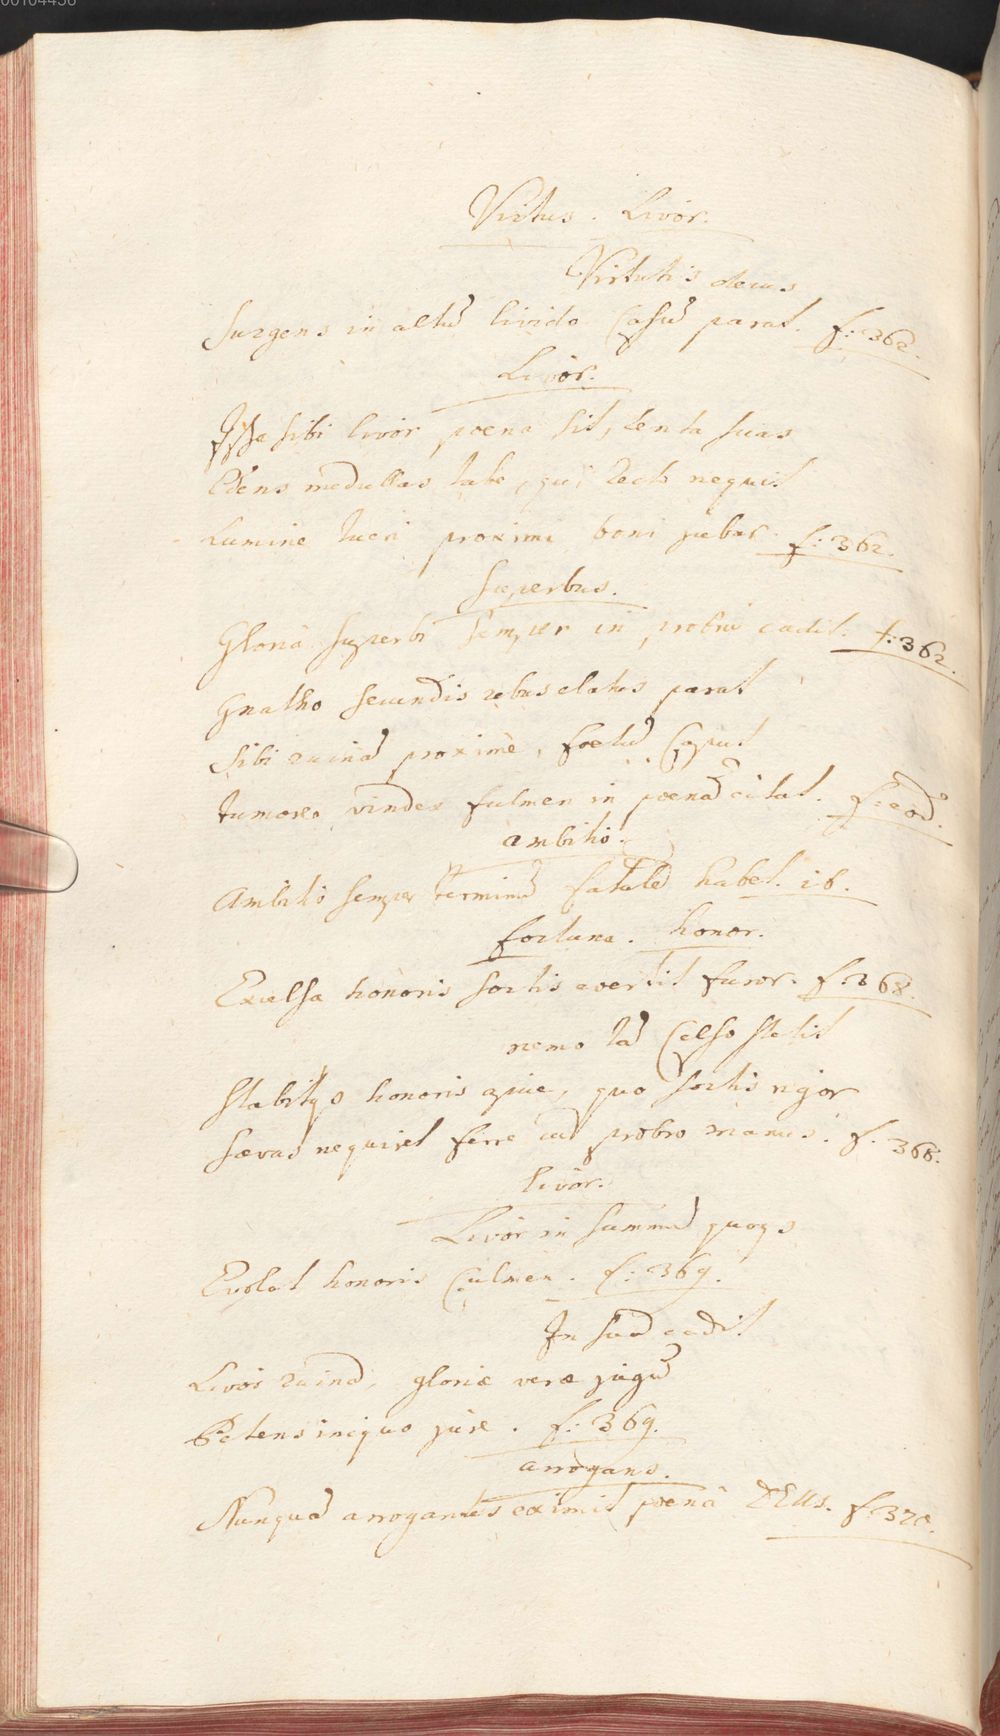 00104456
Virtus. Livor.
Virtutis decus
Surgens in altũ livido Casũ parat. f: 362.
Livor.
Ipse sibi livor poena sit, lenta suas
Edens medullas tabe, qui recto nequit
Lumine tueri proximi boni jubar. f: 362.
Superbus.
Gloria superbi semper in probrũ cadit. f: 362.
Gnatho secundis rebus elatus parat
Sibi ruinã proximè, foetũ Caput
tumore vindex fulmen in poenã citat. f: eod.
ambitio.
Ambitio semper terminũ fatalẽ habet. ib.
fortuna. honor.
Excelsa honoris sortis evertit furor. f: 368.
nemo tã Celso stetit
Stabilis honoris apice, quo sortis rigor
Saevas nequiret ferre cũ probro manus. f. 368.
livor.
Livor in summũ quoqs
Evolat honoris Culmen. f: 369.
In suã cadit
Livor ruinã, gloriae verae jugũ
Petens iniquo jure. f: 369.
arrogans.
Nunquã arrogantes eximit poenâ DEUS. f: 370.